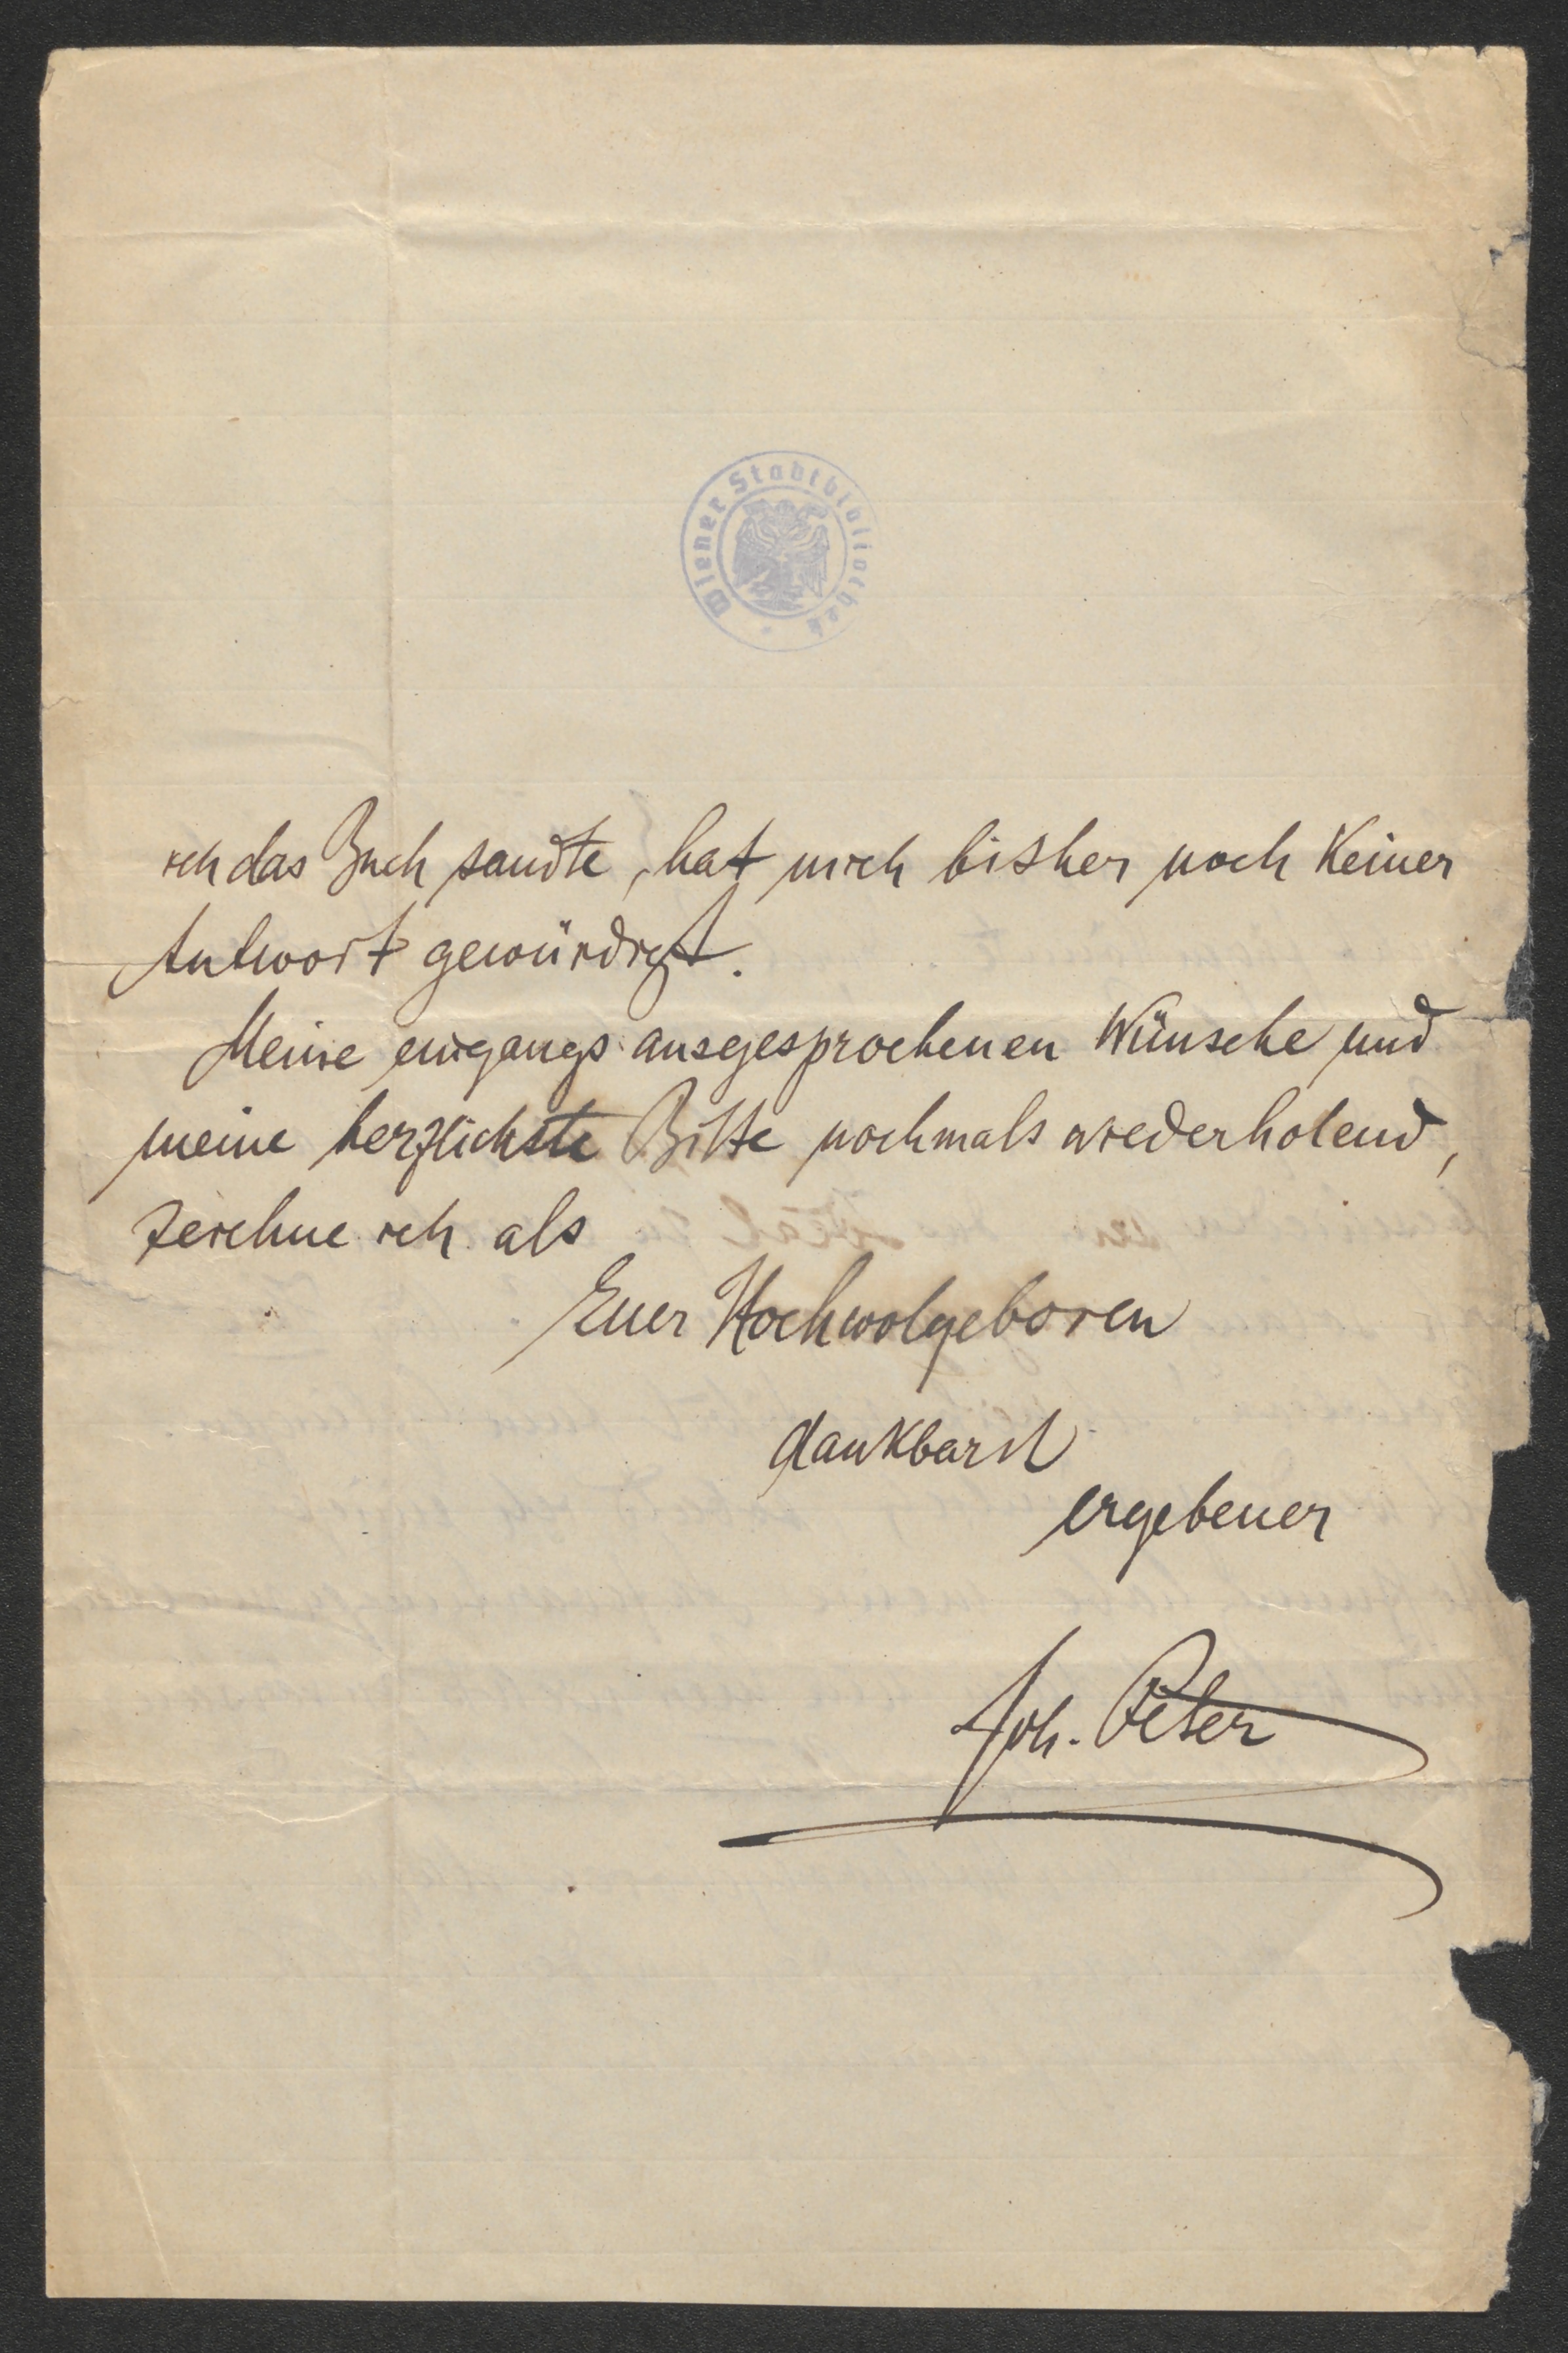 Wiener Stadtbibliothek
ich das Buch sandte, hat mich bisher noch keiner
Antwort gewürdigt.
Meine eingangs ausgesprochenen Wünsche und
meine herzlichste Bitte nochmals wiederholend,
zeichne ich als
Euer Hochwolgeboren
dankbarst
ergebener
Joh. Peter